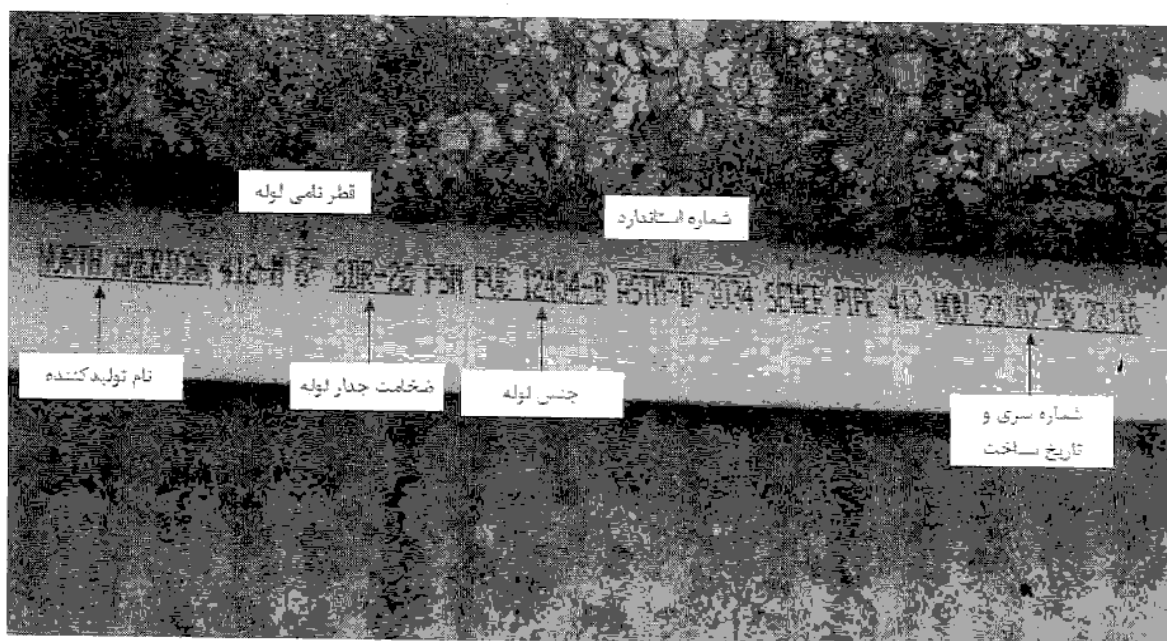 قطر نامی لوله
شماره استاندارد
NORTH AMERICAN 412-N 6" SDR-26 PSM PVC 12454-B ASTM-D 3034 SEWER PIPE 412 NOV 23 97
نام تولیدکننده
ضخامت جدار لوله
جنس لوله
شماره سری و
تاریخ ساخت